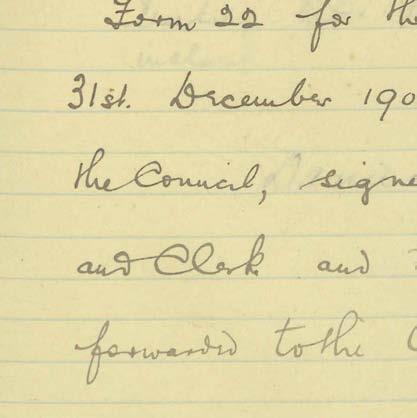 Form 22 for the
31st. December 190
the Council, signe
and Clerk and
forwarded to the